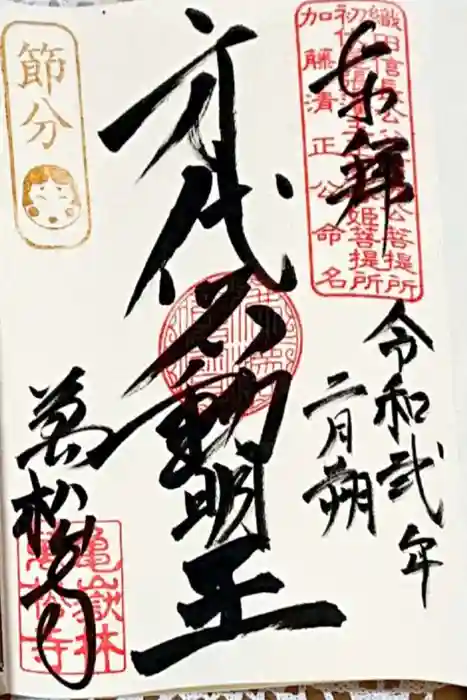 奉拝
織田信長公
公菩提所
初代
姫菩提所
加藤清正公命名
令和弐年
二月朔
身代不動明王
節分
萬松寺
亀嶽林
萬松寺